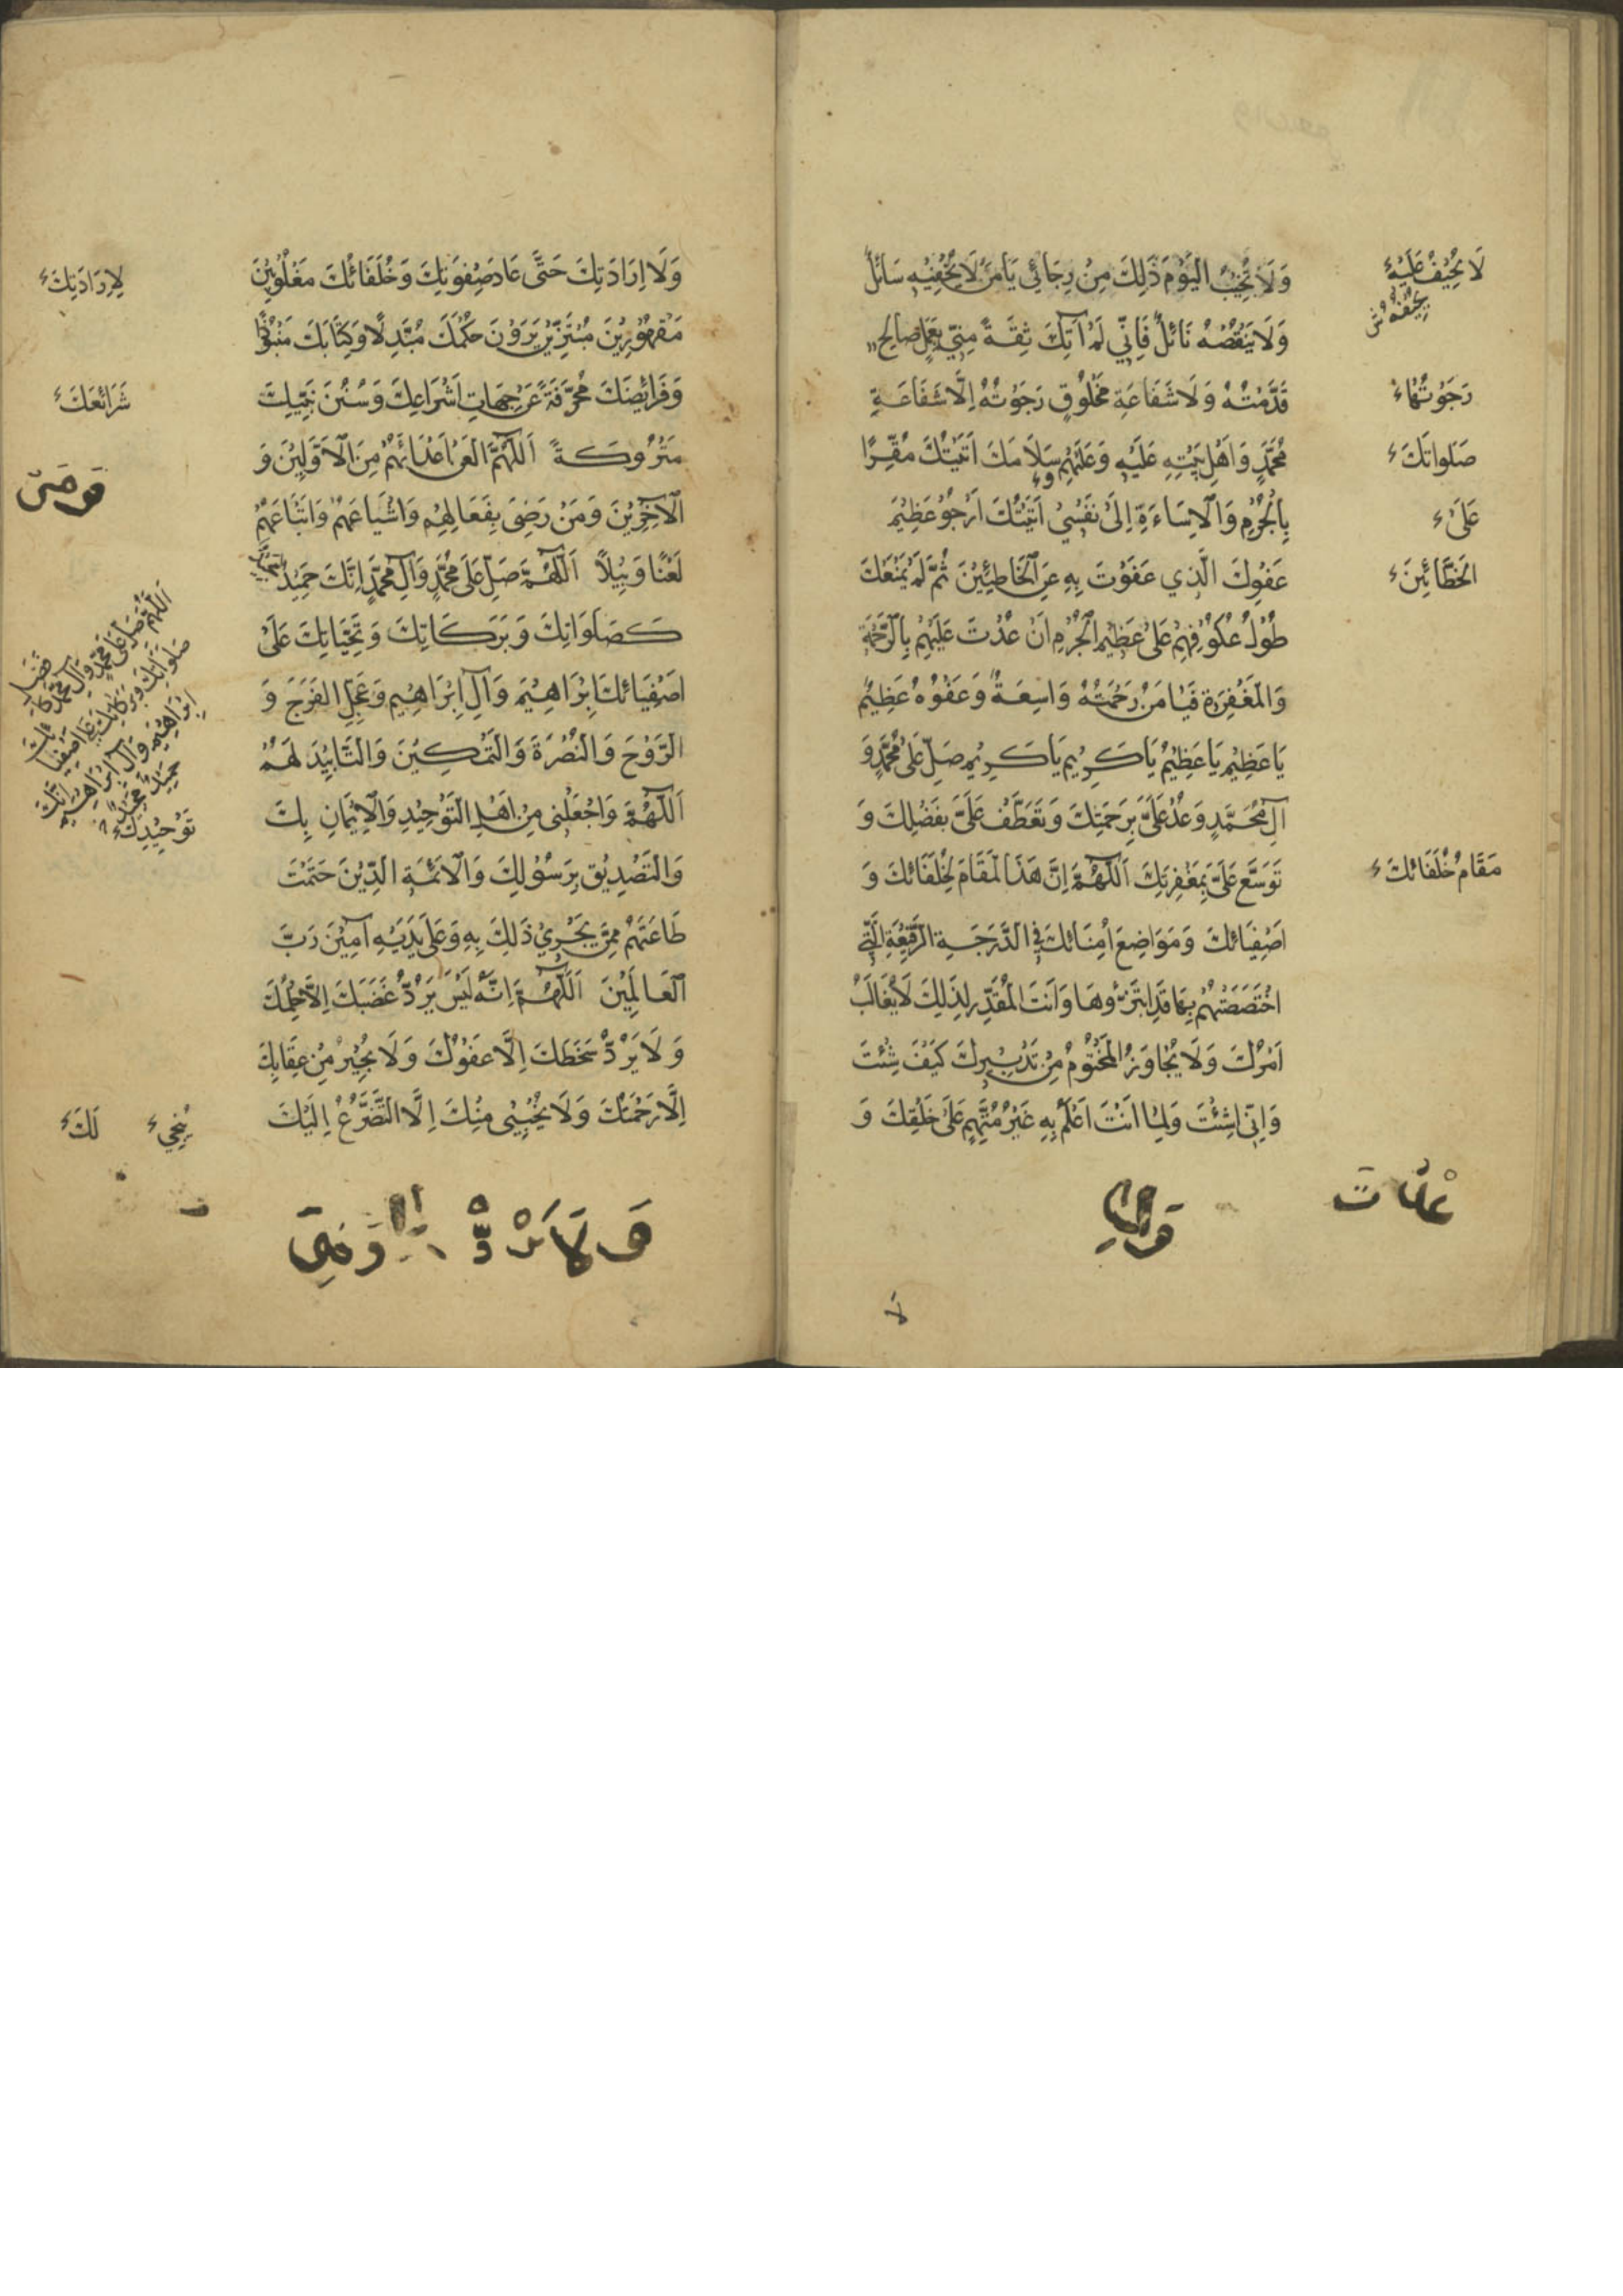 وَلَا تُخَيِّبُ الْيَوْمَ ذَلِكَ مِنْ رِجَائِي يَا مَنْ لَا يُحْفِيهِ سَائِلٌ
وَلَا يَنْقُصُهُ نَائِلٌ فَاِنِّي لَمْ آتِكَ ثِقَةً مِنِّي بِعَمَلٍ صَالِحٍ
قَدَّمْتُهُ وَلَا شَفَاعَةِ مَخْلُوقٍ رَجَوْتُهُ اِلَّا شَفَاعَةِ
مُحَمَّدٍ وَاَهْلِ بَيْتِهِ عَلَيْهِ وَعَلَيْهِمْ سَلَامُكَ اَتَيْتُكَ مُقِرًّا
بِالْجُرْمِ وَالْاِسَاءَةِ اِلَى نَفْسِي اَتَيْتُكَ اَرْجُو عَظِيمَ
عَفْوِكَ الَّذِي عَفَوْتَ بِهِ عَنِ الْخَاطِئِينَ ثُمَّ لَمْ يَمْنَعْكَ
طُولُ عُكُوفِهِمْ عَلَى عَظِيمِ الْجُرْمِ اَنْ عُدْتَ عَلَيْهِمْ بِالرَّحْمَةِ
وَالْمَغْفِرَةِ فَيَا مَنْ رَحْمَتُهُ وَاسِعَةٌ وَعَفْوُهُ عَظِيمٌ
يَا عَظِيمُ يَا عَظِيمُ يَا كَرِيمُ يَا كَرِيمُ صَلِّ عَلَى مُحَمَّدٍ وَ
آلِ مُحَمَّدٍ وَعُدْ عَلَيَّ بِرَحْمَتِكَ وَتَعَطَّفْ عَلَيَّ بِفَضْلِكَ وَ
تَوَسَّعْ عَلَيَّ بِمَغْفِرَتِكَ اَللّٰهُمَّ اِنَّ هَذَا الْمَقَامَ لِخُلَفَائِكَ وَ
اَصْفِيَائِكَ وَمَوَاضِعَ اُمَنَائِكَ فِي الدَّرَجَةِ الرَّفِيعَةِ الَّتِي
اخْتَصَصْتَهُمْ بِهَا قَدِ ابْتَزُّوهَا وَاَنْتَ الْمُقَدِّرُ لِذَلِكَ لَا يُغَالَبُ
اَمْرُكَ وَلَا يُجَاوَزُ الْمَحْتُومُ مِنْ تَدْبِيرِكَ كَيْفَ شِئْتَ
وَاَنَّى شِئْتَ وَلِمَا اَنْتَ اَعْلَمُ بِهِ غَيْرُ مُتَّهَمٍ عَلَى خَلْقِكَ وَ
لَا
لَا يُحِيفُ عَلَيْهِ
رَجَوْتُهَا
صَلَوَاتُكَ
عَلَى
الْخَطَّائِينَ
مَقَامُ خُلَفَائِكَ
وَلَا اِرَادَتِكَ حَتَّى عَادَ صِفْوَتُكَ وَخُلَفَائُكَ مَغْلُوبِينَ
مَقْهُورِينَ مُبْتَزِّينَ يَرَوْنَ حُكْمَكَ مُبَدَّلًا وَكِتَابَكَ مَنْبُوذًا
وَفَرَائِضَكَ مُحَرَّفَةً عَنْ جِهَاتِ اَشْرَاعِكَ وَسُنَنَ نَبِيِّكَ
مَتْرُوكَةً اَللّٰهُمَّ الْعَنْ اَعْدَائَهُمْ مِنَ الْاَوَّلِينَ وَ
الْآخِرِينَ وَمَنْ رَضِيَ بِفَعَالِهِمْ وَاَشْيَاعَهُمْ وَاَتْبَاعَهُمْ
لَعْنًا وَبِيلًا اَللّٰهُمَّ صَلِّ عَلَى مُحَمَّدٍ وَآلِ مُحَمَّدٍ اِنَّكَ حَمِيدٌ مَجِيدٌ
كَصَلَوَاتِكَ وَبَرَكَاتِكَ وَتَحِيَّاتِكَ عَلَى
اَصْفِيَائِكَ اِبْرَاهِيمَ وَآلِ اِبْرَاهِيمَ وَعَجِّلِ الْفَرَجَ وَ
الرَّوْحَ وَالنُّصْرَةَ وَالتَّمْكِينَ وَالتَّايِيدَ لَهُمْ
اَللّٰهُمَّ وَاجْعَلْنِي مِنْ اَهْلِ التَّوْحِيدِ وَالْاِيمَانِ بِكَ
وَالتَّصْدِيقِ بِرَسُولِكَ وَالْاَئِمَّةِ الَّذِينَ حَتَمْتَ
طَاعَتَهُمْ مِمَّنْ يَجْرِي ذَلِكَ بِهِ وَعَلَى يَدَيْهِ آمِينَ رَبَّ
الْعَالَمِينَ اَللّٰهُمَّ اِنَّهُ لَيْسَ يَرُدُّ غَضَبَكَ اِلَّا حِلْمُكَ
وَلَا يَرُدُّ سَخَطَكَ اِلَّا عَفْوُكَ وَلَا يُجِيرُ مِنْ عِقَابِكَ
اِلَّا رَحْمَتُكَ وَلَا يُنْجِينِي مِنْكَ اِلَّا التَّضَرُّعُ اِلَيْكَ
وَلَا يَرُدُّ
لِاِرَادَتِكَ
شَرَائِعِكَ
اَللّٰهُمَّ صَلِّ عَلَى مُحَمَّدٍ وَآلِ مُحَمَّدٍ كَاَفْضَلِ
صَلَوَاتِكَ وَبَرَكَاتِكَ عَلَى اَصْفِيَائِكَ
اِبْرَاهِيمَ وَآلِ اِبْرَاهِيمَ اِنَّكَ
حَمِيدٌ مَجِيدٌ
تَوْحِيدِكَ
يُنْجِي
لَكَ